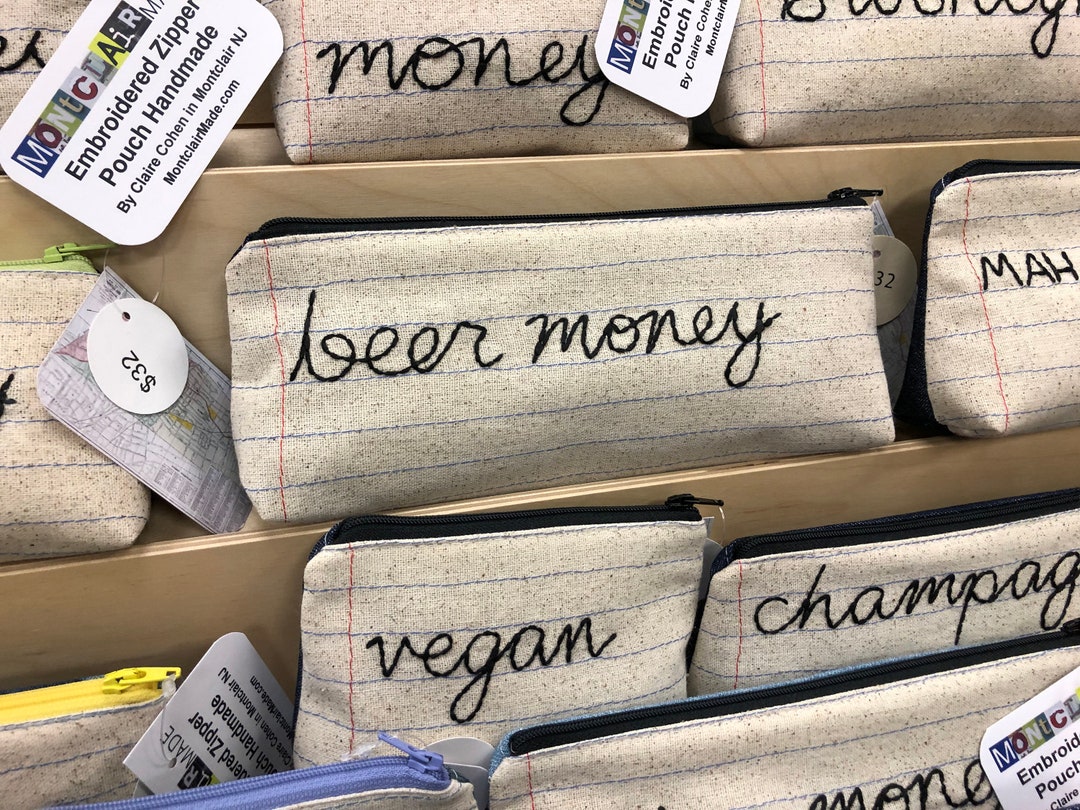 MONTCLAIR MA
Embroidered Zipper
Pouch Handmade
By Claire Cohen in Montclair NJ
MontclairMade.com
money
MONT
Embro
Pouch
By Claire Cohen
Montclair
beer money
32
$32
MAH
vegan
champag
MADE
dered Zipper
uch Handmade
Claire Cohen in Montclair NJ
MontclairMade.com
mone
MONTCLA
Embroid
Pouch
By Claire